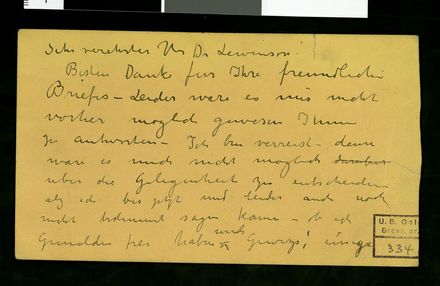 Sehr verehrter Hr Dr Lewinson!
Besten Dank für Ihre freundlichen
Briefes – Leider ware es mis nicht
vorher moglich gewesen Ihnen
zu antworten – Ich bin verreist – denn
ware es mich nicht moglich
uber die Gelegenheit zu entscheiden
als ich bis jetzt und leider auch noch
nicht bestimmt sagen kann – ob ich
Gemälde frei haben werde
U.B. Oslo
Brevs. nr.
334